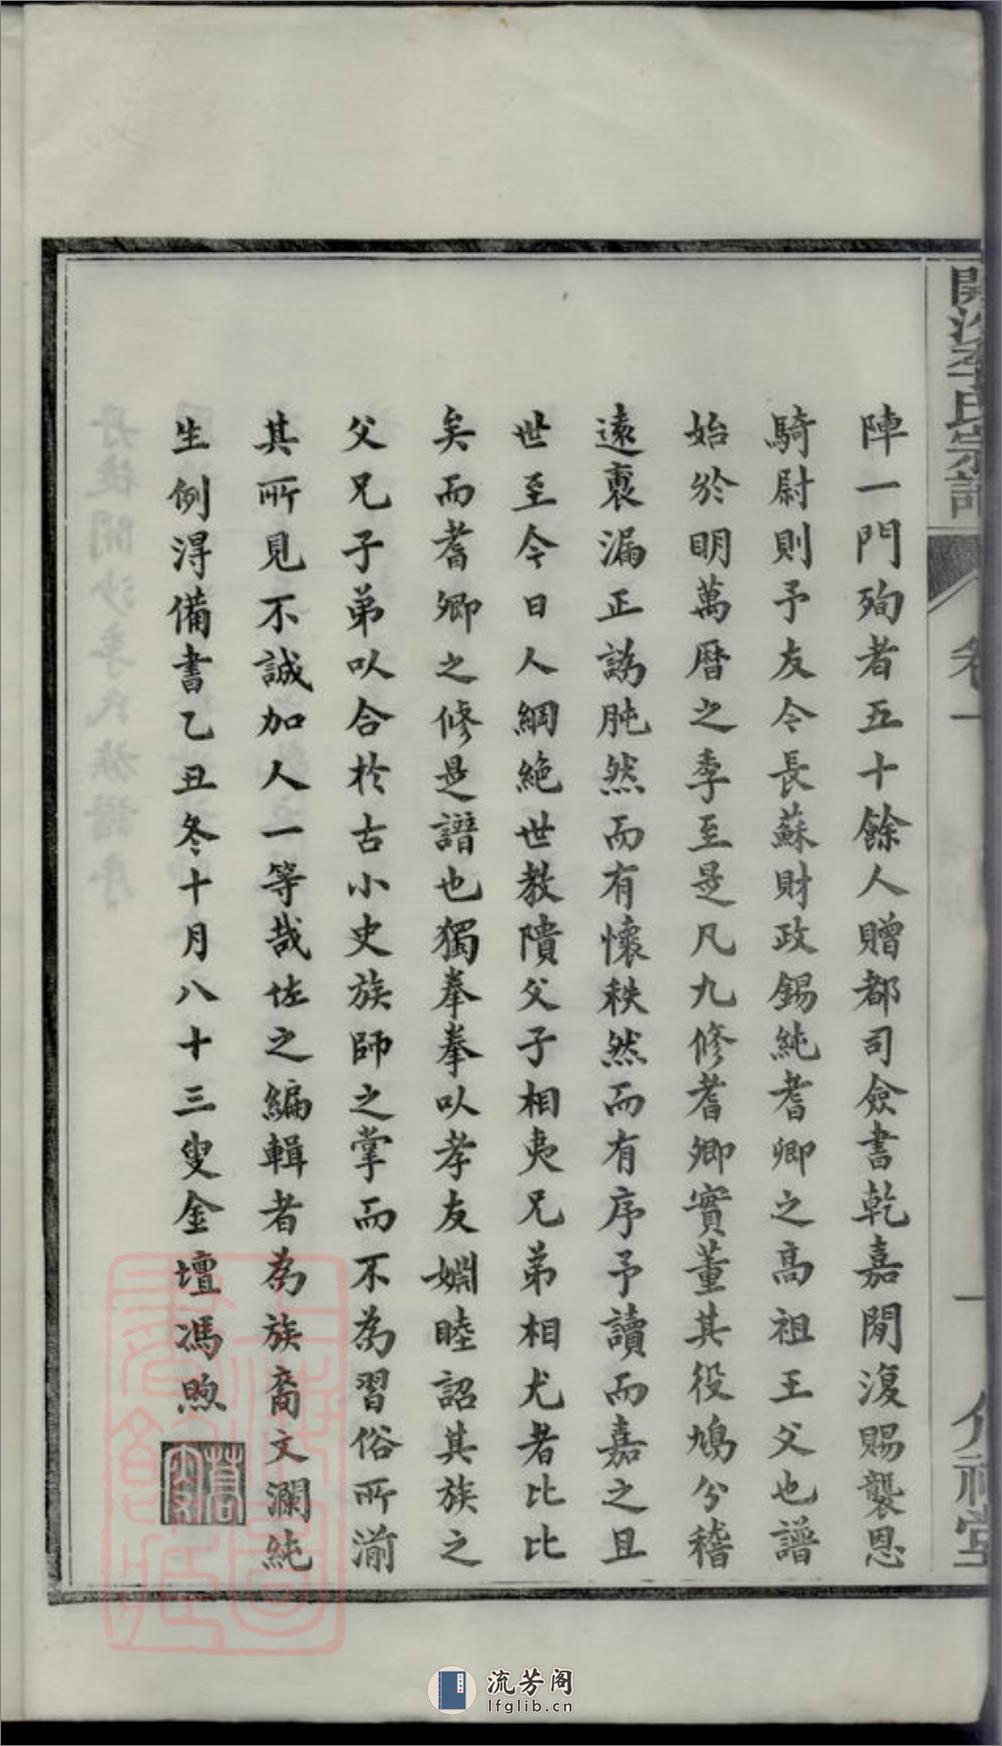 開沙李氏宗譜
卷一
一
陣一門殉者五十餘人贈都司僉書乾嘉閒復賜襲恩
騎尉則予友今長蘇財政錫純耆卿之高祖王父也譜
始於明萬曆之季至是凡九修耆卿實董其役鳩分稽
遠裒漏正譌肫然而有懷秩然而有序予讀而嘉之且
世至今日人綱絶世教隤父子相夷兄弟相尤者比比
矣而耆卿之修是譜也獨拳拳以孝友婣睦詔其族之
父兄子弟以合於古小史族師之掌而不為習俗所湔
其所見不誠加人一等哉佐之編輯者為族裔文瀾純
生例淂備書乙丑冬十月八十三叟金壇馮煦
蒿盦
流芳阁
lfglib.cn